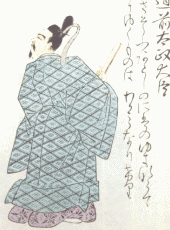 道前太政大臣
さそふあらし
のにはのゆきならて
ふりゆくものはわか身なりけり